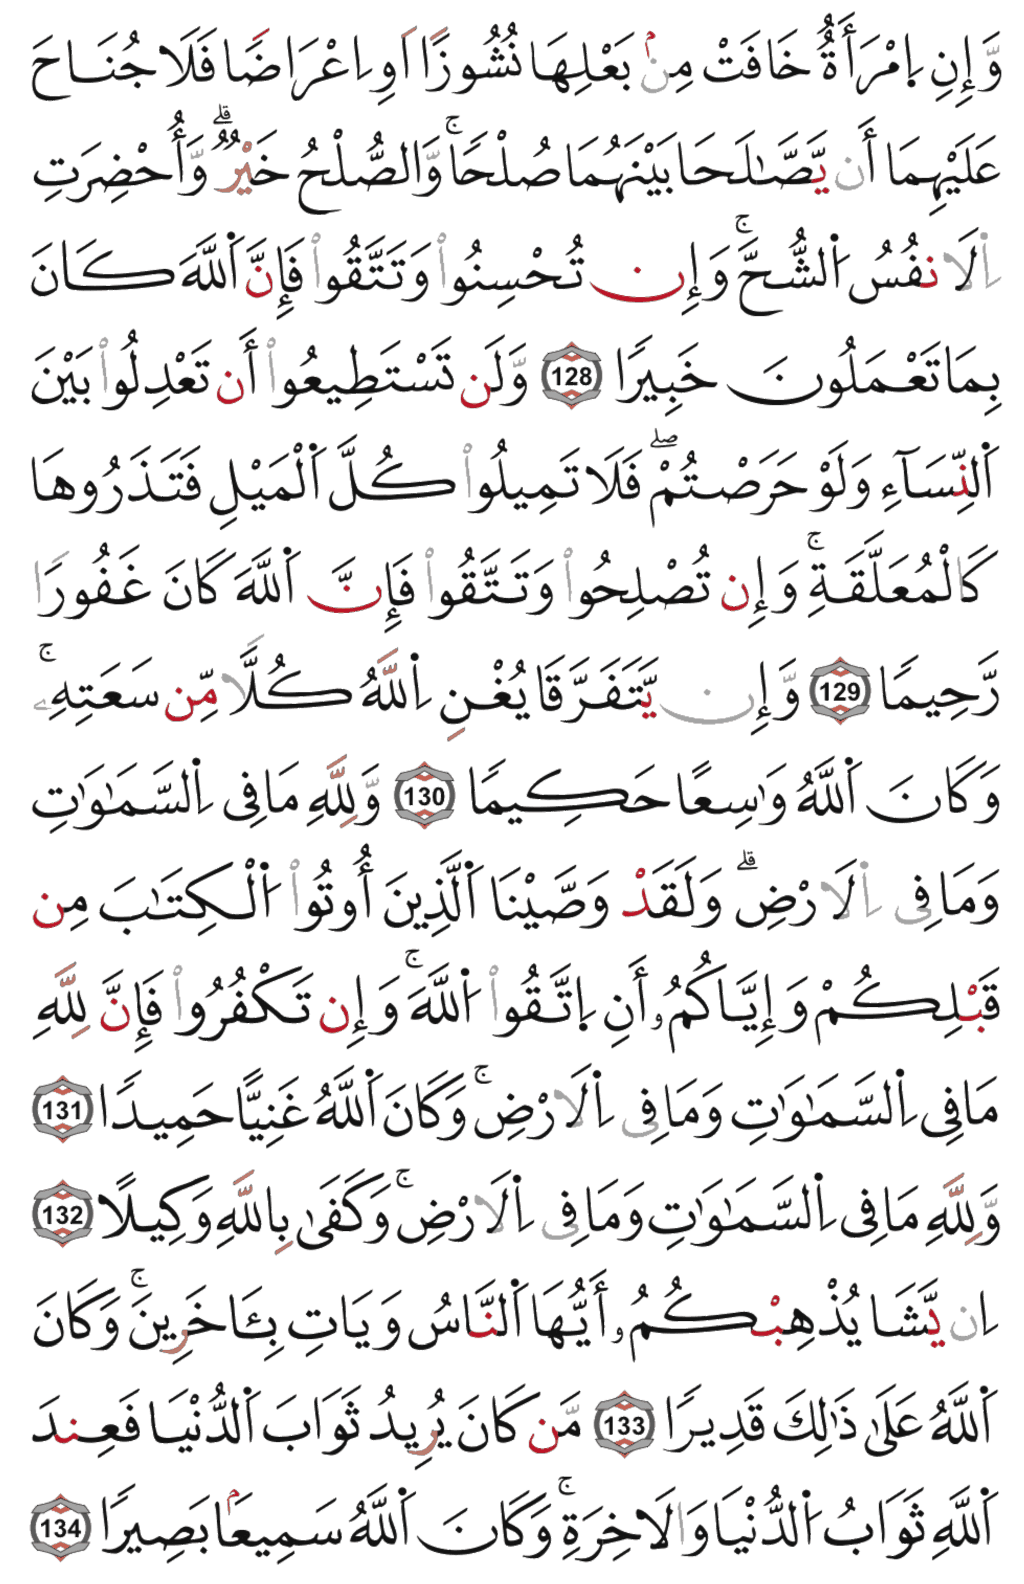 وَّإِنِ اِمْرَأَةٌ خَافَتْ مِنۢ بَعْلِهَا نُشُوزًا اَوِ اِعْرَاضًا فَلَا جُنَاحَ
عَلَيْهِمَا أَن يَّصَّـٰلَحَا بَيْنَهُمَا صُلْحًا ۚ وَّالصُّلْحُ خَيْرٌ ۗ وَّأُحْضِرَتِ
اِ۬لَانفُسُ اُ۬لشُّحَّ ۚ وَإِن تُحْسِنُوا۟ وَتَتَّقُوا۟ فَإِنَّ اَ۬للَّهَ كَانَ
بِمَا تَعْمَلُونَ خَبِيرًا 128 وَّلَن تَسْتَطِيعُوا۟ أَن تَعْدِلُوا۟ بَيْنَ
اَ۬لنِّسَآءِ وَلَوْ حَرَصْتُمْ ۖ فَلَا تَمِيلُوا۟ كُلَّ اَ۬لْمَيْلِ فَتَذَرُوهَا
كَالْمُعَلَّقَةِ ۚ وَإِن تُصْلِحُوا۟ وَتَتَّقُوا۟ فَإِنَّ اَ۬للَّهَ كَانَ غَفُورًا
رَّحِيمًا 129 وَّإِن يَّتَفَرَّقَا يُغْنِ اِ۬للَّهُ كُلًّا مِّن سَعَتِهِۦ ۚ
وَكَانَ اَ۬للَّهُ وَٰسِعًا حَكِيمًا 130 وَّلِلَّهِ مَا فِى اِ۬لسَّمَـٰوَٰتِ
وَمَا فِى اِ۬لَارْضِ ۗ وَلَقَدْ وَصَّيْنَا اَ۬لَّذِينَ أُوتُوا۟ اُ۬لْكِتَـٰبَ مِن
قَبْلِكُمْ وَإِيَّاكُمُۥ أَنِ اِتَّقُوا۟ اُ۬للَّهَ ۚ وَإِن تَكْفُرُوا۟ فَإِنَّ لِلَّهِ
مَا فِى اِ۬لسَّمَـٰوَٰتِ وَمَا فِى اِ۬لَارْضِ ۚ وَكَانَ اَ۬للَّهُ غَنِيًّا حَمِيدًا 131
وَّلِلَّهِ مَا فِى اِ۬لسَّمَـٰوَٰتِ وَمَا فِى اِ۬لَارْضِ ۚ وَكَفَىٰ بِاللَّهِ وَكِيلًا 132
اِن يَّشَا يُذْهِبْكُمُۥ أَيُّهَا اَ۬لنَّاسُ وَيَاتِ بِـَٔاخَرِينَ ۚ وَكَانَ
اَ۬للَّهُ عَلَىٰ ذَٰلِكَ قَدِيرًا 133 مَّن كَانَ يُرِيدُ ثَوَابَ اَ۬لدُّنْيَا فَعِندَ
اَ۬للَّهِ ثَوَابُ اُ۬لدُّنْيَا وَالَاخِرَةِ ۚ وَكَانَ اَ۬للَّهُ سَمِيعَۢا بَصِيرًا 134